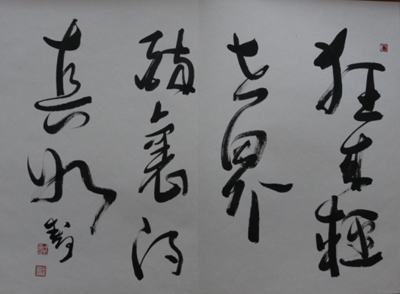 狂来輕
世界
醉裏得
真如